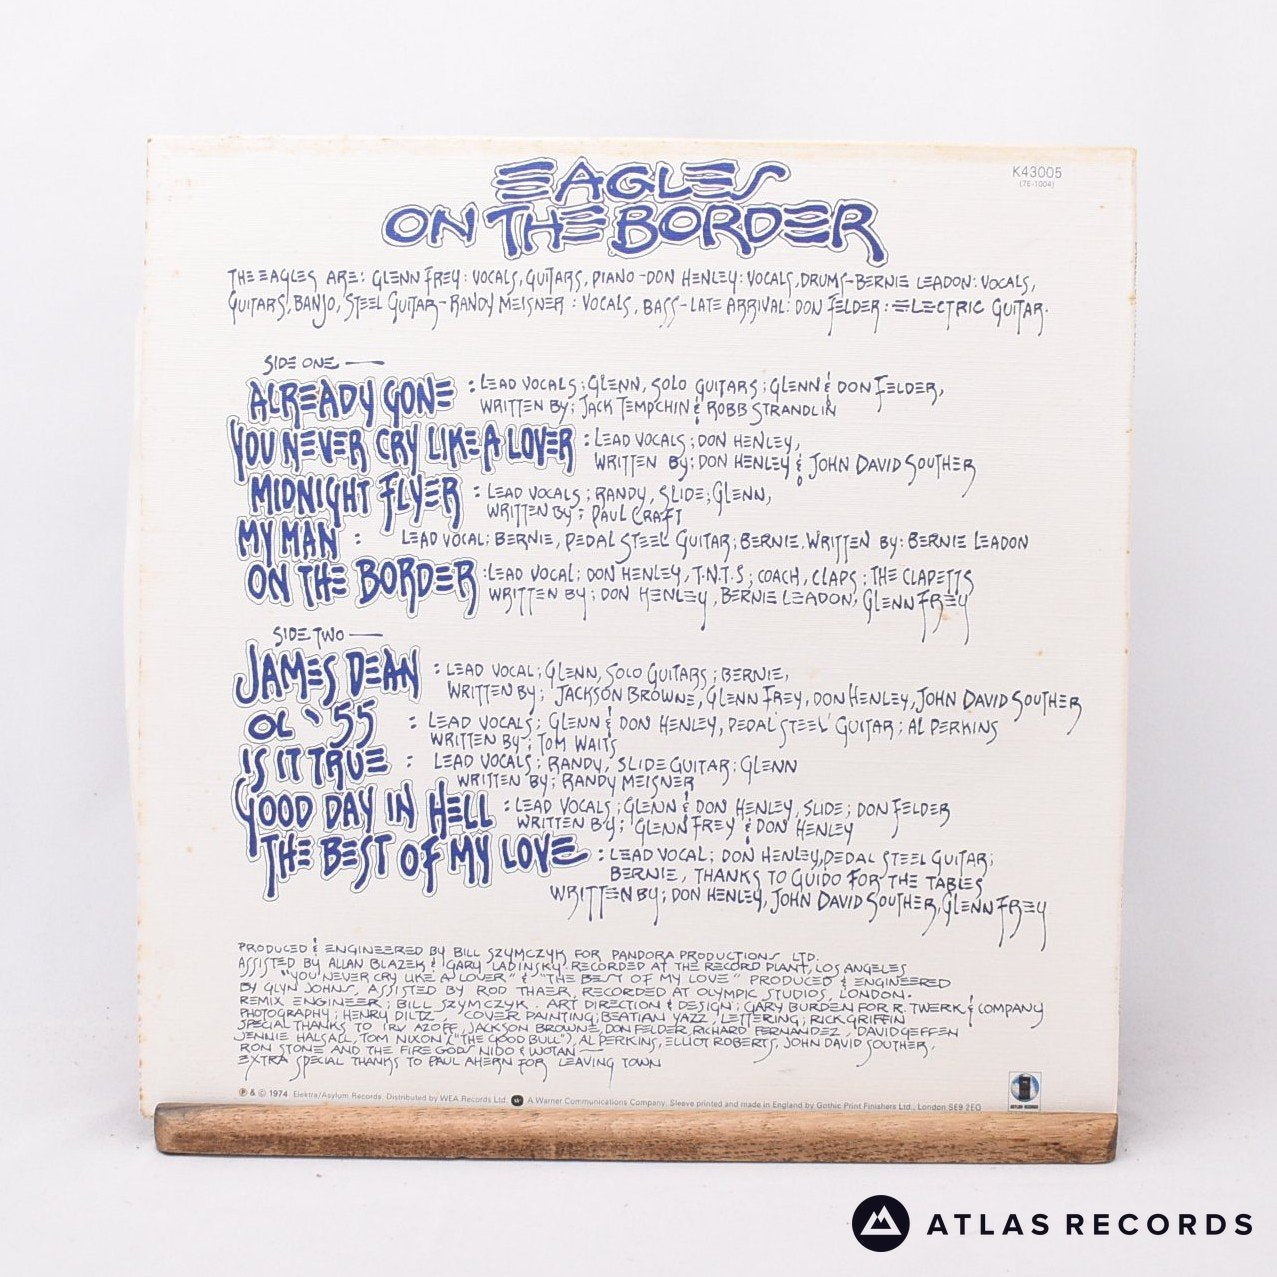 EAGLES
K43005
(7E-1004)
ON THE BORDER
THE EAGLES ARE: GLENN FREY: VOCALS, GUITARS, PIANO-DON HENLEY: VOCALS, DRUMS-BERNIE LEADON: VOCALS,
GUITARS, BANJO, STEEL GUITAR-RANDY MEISNER: VOCALS, BASS-LATE ARRIVAL: DON FELDER: ELECTRIC GUITAR.
SIDE ONE —
ALREADY GONE : LEAD VOCALS; GLENN, SOLO GUITARS; GLENN & DON FELDER,
WRITTEN BY; JACK TEMPCHIN & ROBB STRANDLIN
YOU NEVER CRY LIKE A LOVER : LEAD VOCALS; DON HENLEY,
WRITTEN BY: DON HENLEY & JOHN DAVID SOUTHER
MIDNIGHT FLYER : LEAD VOCALS; RANDY, SLIDE; GLENN,
WRITTEN BY; PAUL CRAFT
MY MAN : LEAD VOCAL: BERNIE, PEDAL STEEL GUITAR; BERNIE. WRITTEN BY: BERNIE LEADON
ON THE BORDER : LEAD VOCAL; DON HENLEY, T.N.T.S; COACH, CLAPS: THE CLAPETTS
WRITTEN BY; DON HENLEY, BERNIE LEADON, GLENN FREY
SIDE TWO —
JAMES DEAN : LEAD VOCAL; GLENN, SOLO GUITARS; BERNIE,
WRITTEN BY; JACKSON BROWNE, GLENN FREY, DON HENLEY, JOHN DAVID SOUTHER
OL '55 : LEAD VOCALS; GLENN & DON HENLEY, PEDAL STEEL GUITAR; AL PERKINS
WRITTEN BY; TOM WAITS
IS IT TRUE : LEAD VOCALS; RANDY, SLIDE GUITAR: GLENN
WRITTEN BY; RANDY MEISNER
GOOD DAY IN HELL : LEAD VOCALS; GLENN & DON HENLEY, SLIDE; DON FELDER
WRITTEN BY; GLENN FREY & DON HENLEY
THE BEST OF MY LOVE : LEAD VOCAL; DON HENLEY, PEDAL STEEL GUITAR;
BERNIE, THANKS TO GUIDO FOR THE TABLES
WRITTEN BY; DON HENLEY, JOHN DAVID SOUTHER, GLENN FREY
PRODUCED & ENGINEERED BY BILL SZYMCZYK FOR PANDORA PRODUCTIONS LTD.
ASSISTED BY ALLAN BLAZEK & GARY LADINSKY. RECORDED AT THE RECORD PLANT, LOS ANGELES
"YOU NEVER CRY LIKE A LOVER" & "THE BEST OF MY LOVE" PRODUCED & ENGINEERED
BY GLYN JOHNS, ASSISTED BY ROD THAER, RECORDED AT OLYMPIC STUDIOS, LONDON.
REMIX ENGINEER; BILL SZYMCZYK. ART DIRECTION & DESIGN; GARY BURDEN FOR R. TWERK & COMPANY
PHOTOGRAPHY; HENRY DILTZ COVER PAINTING; BEATIAN YAZZ, LETTERING; RICK GRIFFIN
SPECIAL THANKS TO IRV AZOFF, JACKSON BROWNE, DON FELDER, RICHARD FERNANDEZ, DAVID GEFFEN
JENNIE HALSALL, TOM NIXON ("THE GOOD BULL"), AL PERKINS, ELLIOT ROBERTS, JOHN DAVID SOUTHER,
RON STONE AND THE FIRE GODS NIDO & WOTAN —
EXTRA SPECIAL THANKS TO PAUL AHERN FOR LEAVING TOWN
℗ & © 1974 Elektra/Asylum Records. Distributed by WEA Records Ltd. A Warner Communications Company. Sleeve printed and made in England by Gothic Print Finishers Ltd., London SE9 2EQ
ASYLUM RECORDS
ATLAS RECORDS